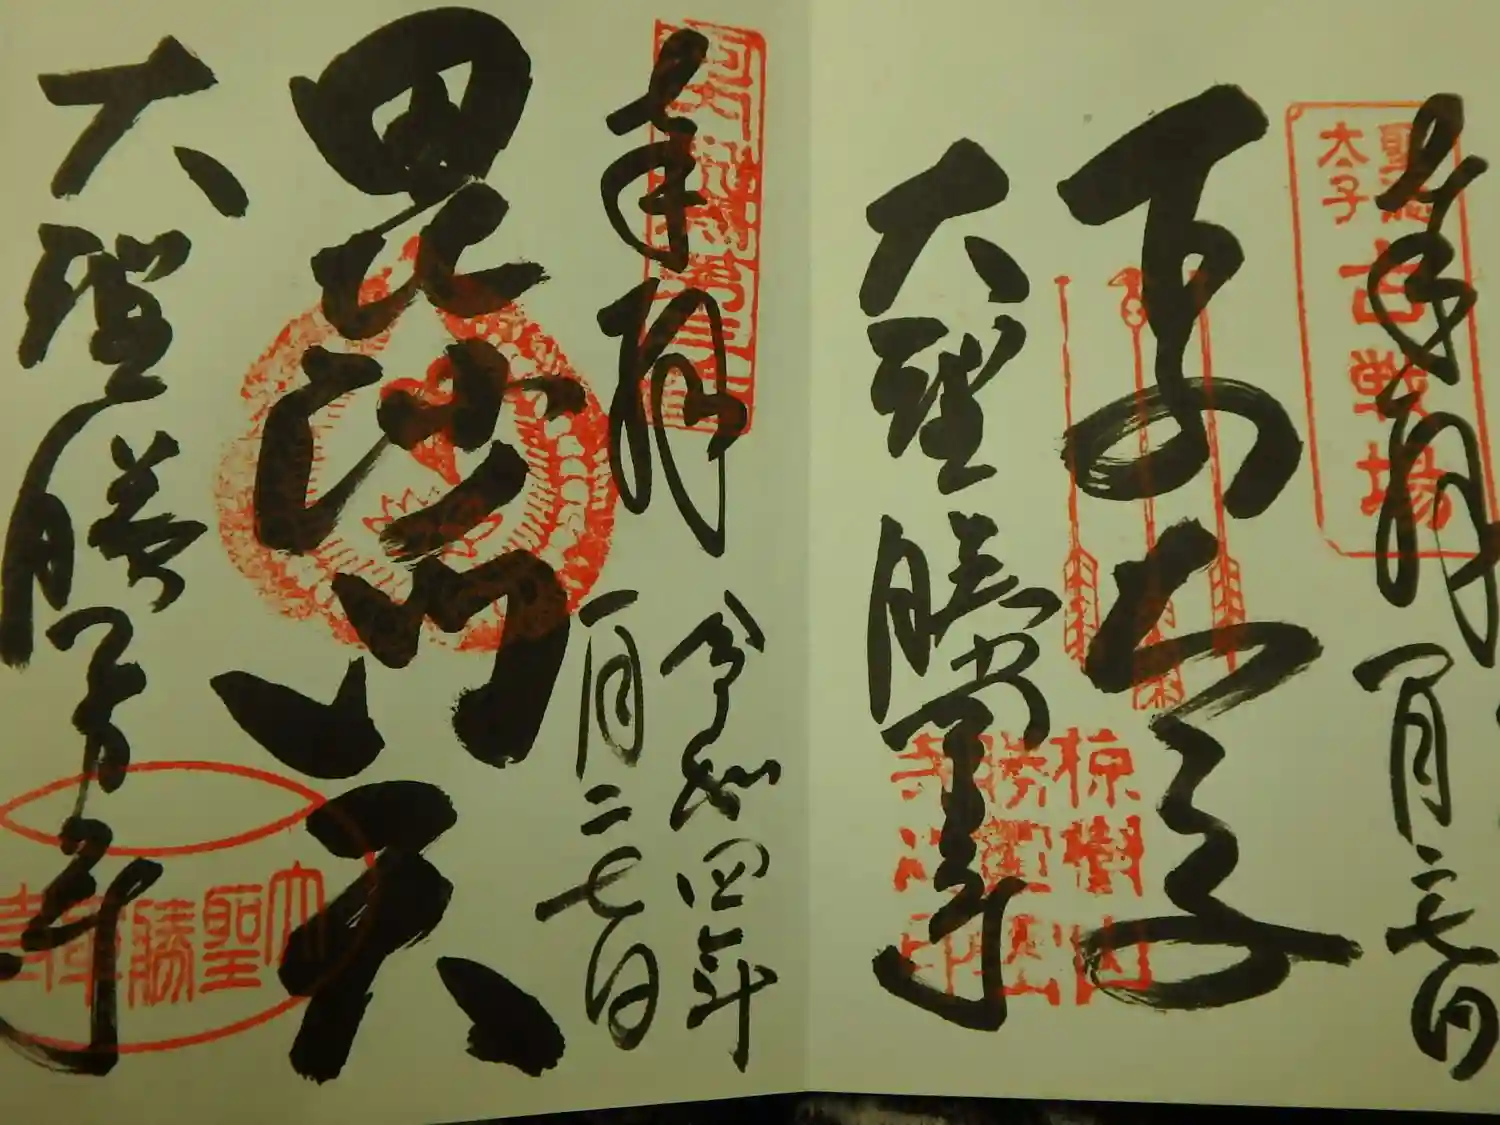 奉拝
一月二七日
聖徳
太子
古戦場
下の太子
大聖勝軍寺
椋樹山
奉拝
令和四年
一月二七日
毘沙門天
大聖勝軍寺
大聖勝軍寺